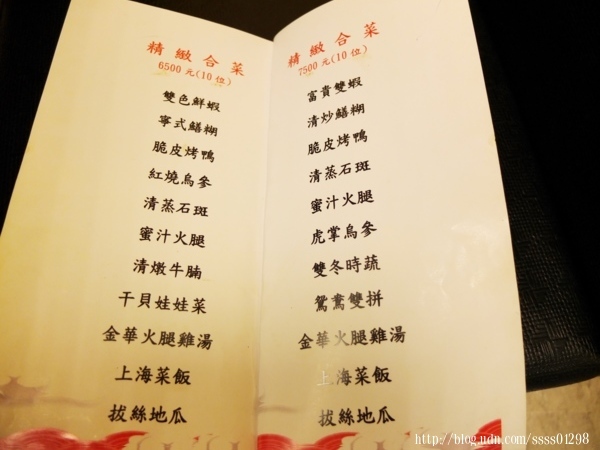 精緻合菜
6500元(10位)
雙色鮮蝦
寧式鱔糊
脆皮烤鴨
紅燒烏參
清蒸石斑
蜜汁火腿
清燉牛腩
干貝娃娃菜
金華火腿雞湯
上海菜飯
拔絲地瓜
精緻合菜
7500元(10位)
富貴雙蝦
清炒鱔糊
脆皮烤鴨
清蒸石斑
蜜汁火腿
虎掌烏參
雙冬時蔬
鴛鴦雙拼
金華火腿雞湯
上海菜飯
拔絲地瓜
http://blog.udn.com/ssss01298